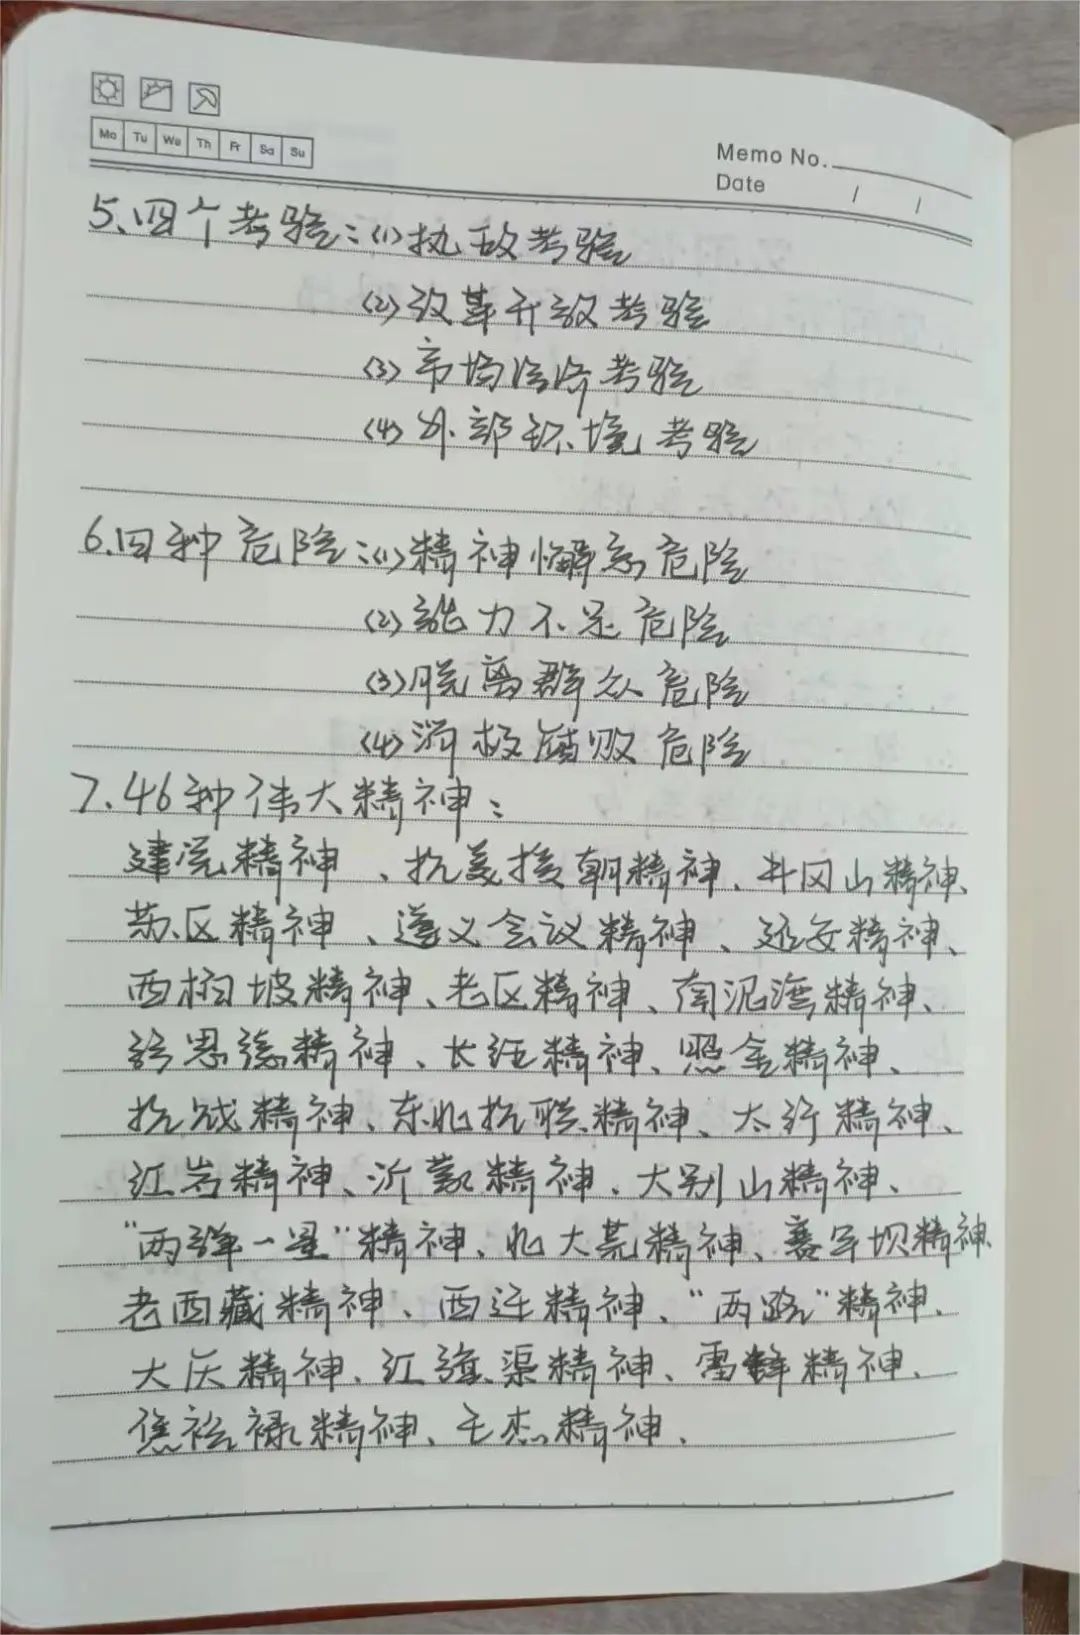 Mo Tu We Th Fr Sa Su
Memo No.
Date / /
5、四个考验:(1)执政考验
(2)改革开放考验
(3)市场经济考验
(4)外部环境考验
6.四种危险:(1)精神懈怠危险
(2)能力不足危险
(3)脱离群众危险
(4)消极腐败危险
7.46种伟大精神:
建党精神、抗美援朝精神、井冈山精神、
苏区精神、遵义会议精神、延安精神、
西柏坡精神、老区精神、南泥湾精神、
张思德精神、长征精神、照金精神、
抗战精神、东北抗联精神、太行精神、
红岩精神、沂蒙精神、大别山精神、
"两弹一星"精神、北大荒精神、塞罕坝精神、
老西藏精神、西迁精神、"两路"精神、
大庆精神、红旗渠精神、雷锋精神、
焦裕禄精神、王杰精神、